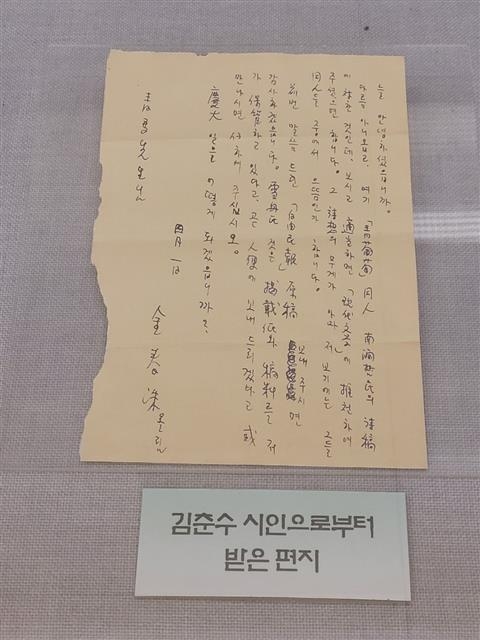 늘 안녕하셨읍니까.
다름 아니옵고, 여기 「青葡萄」同人 南潤哲氏의 詩稿
이 참한 것인데, 보시고 適當하면 「現代文学」에 推천하여
주셨으면 합니다. 그 詩想의 무게가 아마 저 보기에는 그들
同人들 중에서 으뜸인가 합니다.
前번 말씀 드린 「自由民報」原稿 보내 주시면
감사하겠읍니다. 雪舟氏 것은 揭載紙와 稿料를 저
가 保管하고 있다고, 곧 人便에 보내 드리겠다고 或
만나시면 전하여 주십시오.
慶大 일은 어떻게 되겠읍니까.
四月 一日
金春洙 올림
青馬先生님
김춘수 시인으로부터
받은 편지